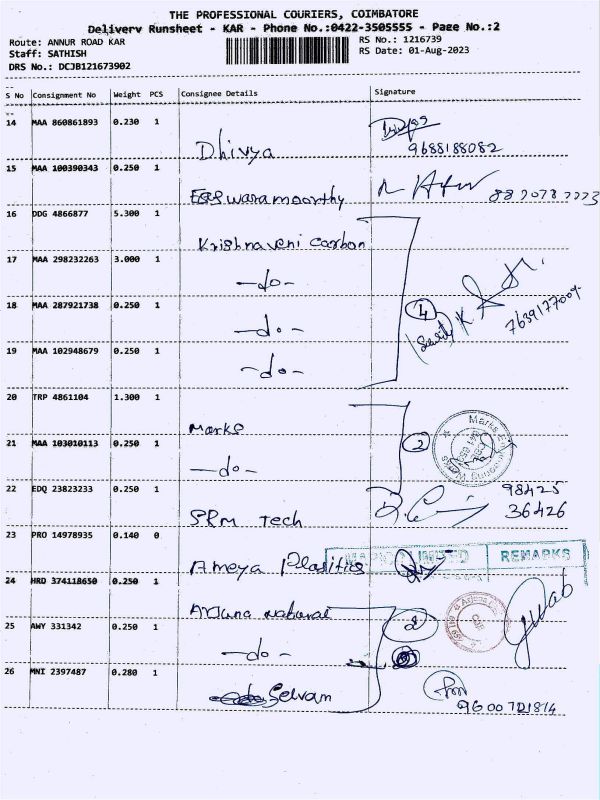 THE PROFESSIONAL COURIERS, COIMBATORE
Delivery Runsheet - KAR - Phone No.:0422-3505555 - Page No.:2
Route: ANNUR ROAD KAR
RS No.: 1216739
Staff: SATHISH
RS Date: 01-Aug-2023
DRS No.: DCJB121673902
S No Consignment No Weight PCS Consignee Details Signature
14 MAA 860861893 0.230 1
Dhivya
9688188082
15 MAA 100390343 0.250 1
Eqswaramoorthy
16 DDG 4866877 5.300 1
Krishnaveni Carbon
17 MAA 298232263 3.000 1
-do-
18 MAA 287921738 0.250 1
-do-
4
7639177009
19 MAA 102948679 0.250 1
-do-
20 TRP 4861104 1.300 1
Marks
21 MAA 103010113 0.250 1
-do-
2
22 EDQ 23823233 0.250 1
SRM Tech
98425
36426
23 PRO 14978935 0.140 0
Ameya
REMARKS
24 HRD 374118650 0.250 1
Arjuna
2
25 AWY 331342 0.250 1
-do-
26 MNI 2397487 0.280 1
Selvam